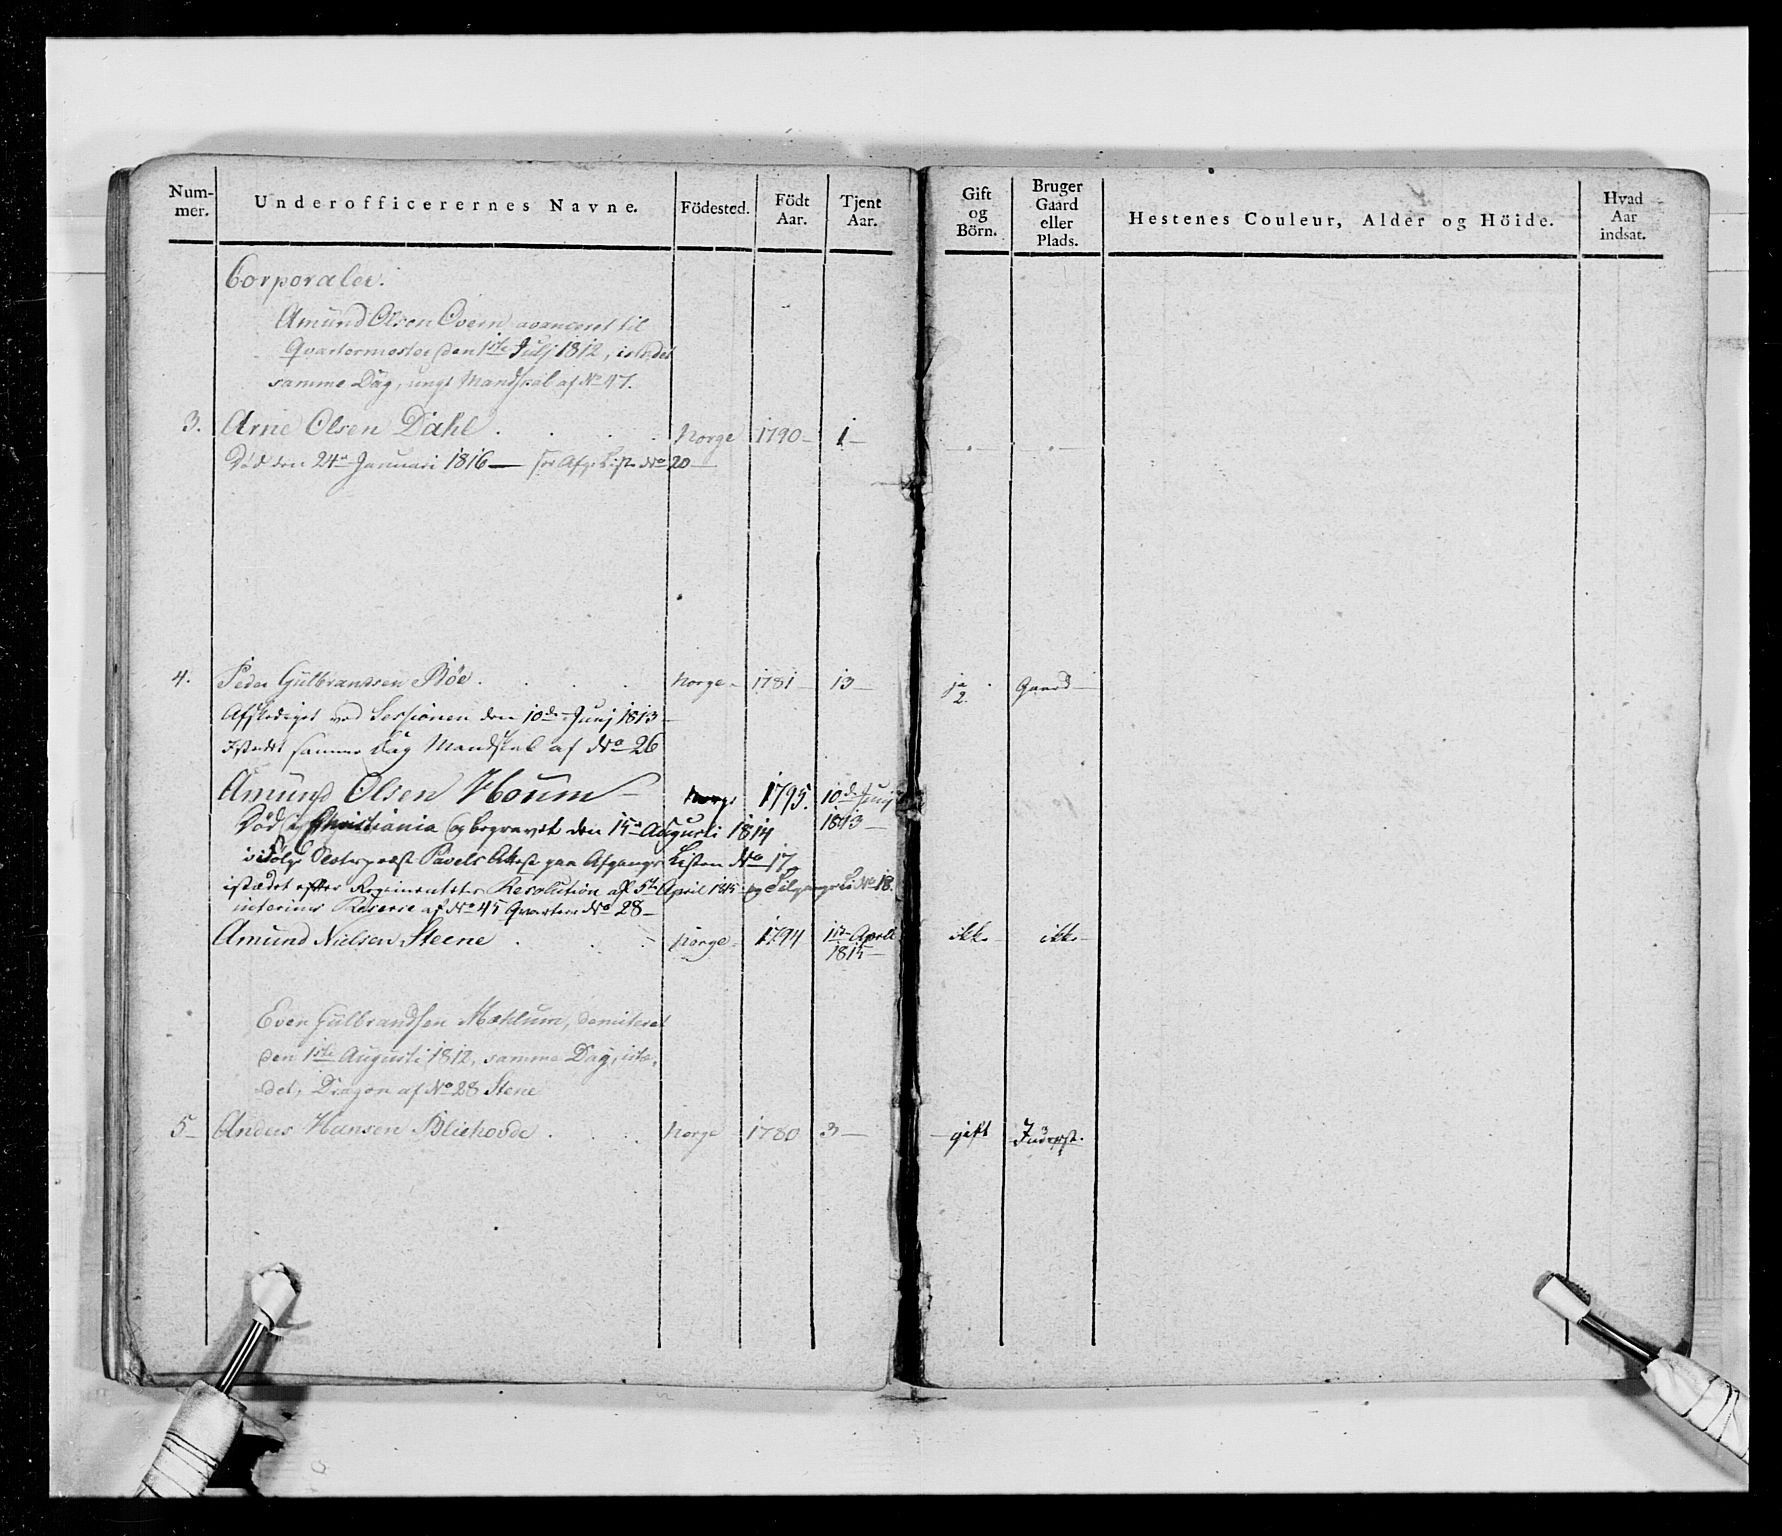 Num-
mer.
Underofficerernes Navne.
Födested.
Födt
Aar.
Tjent
Aar.
Gift
og
Börn.
Bruger
Gaard
eller
Plads.
Hestenes Couleur, Alder og Höide.
Hvad
Aar
indsat.
Corporaler.
Amund Olsen Overn avanceret til
Qvarteermester den 1ste Julj 1812, istædet
samme Dag, ungt Mandskab af No 47.
3. Arne Olsen Dahl . . . . Norge 1790 — 1 —
Död den 24de Januari 1816 — see Afg: Liste No 20 —
4. Peder Gulbrandsen Röe . . . . Norge - 1781 — 13 — ja 2. Gaard —
Afskediget ved Sessionen den 10de Junj 1813 —
Istædet samme Dag Mandskab af No 26
Amund Olsen Houm — Norge 1795. 10de Junj
1813 —
Död i Christiania og begravet den 15de Augusti 1814
ifölge Præst Pavels Attest paa Afgangs Listen No 17
istædet efter Regimentets Resolution af 5te April 1815 og Tilgangs Li: No 18.
interims Reserve af No 45 Qvarteer No 28 —
Amund Nielsen Steene . . . — Norge - 1794 1ste April ikke — ikke —
1815 —
Even Gulbrandsen Mæhlum, demiteret
den 1ste Augusti 1812, samme Dag, istæ-
det, Dragon af No 28 Stene
5 — Anders Hansen Bliehovde . . . . Norge 1780 3 — — gift Inderst.